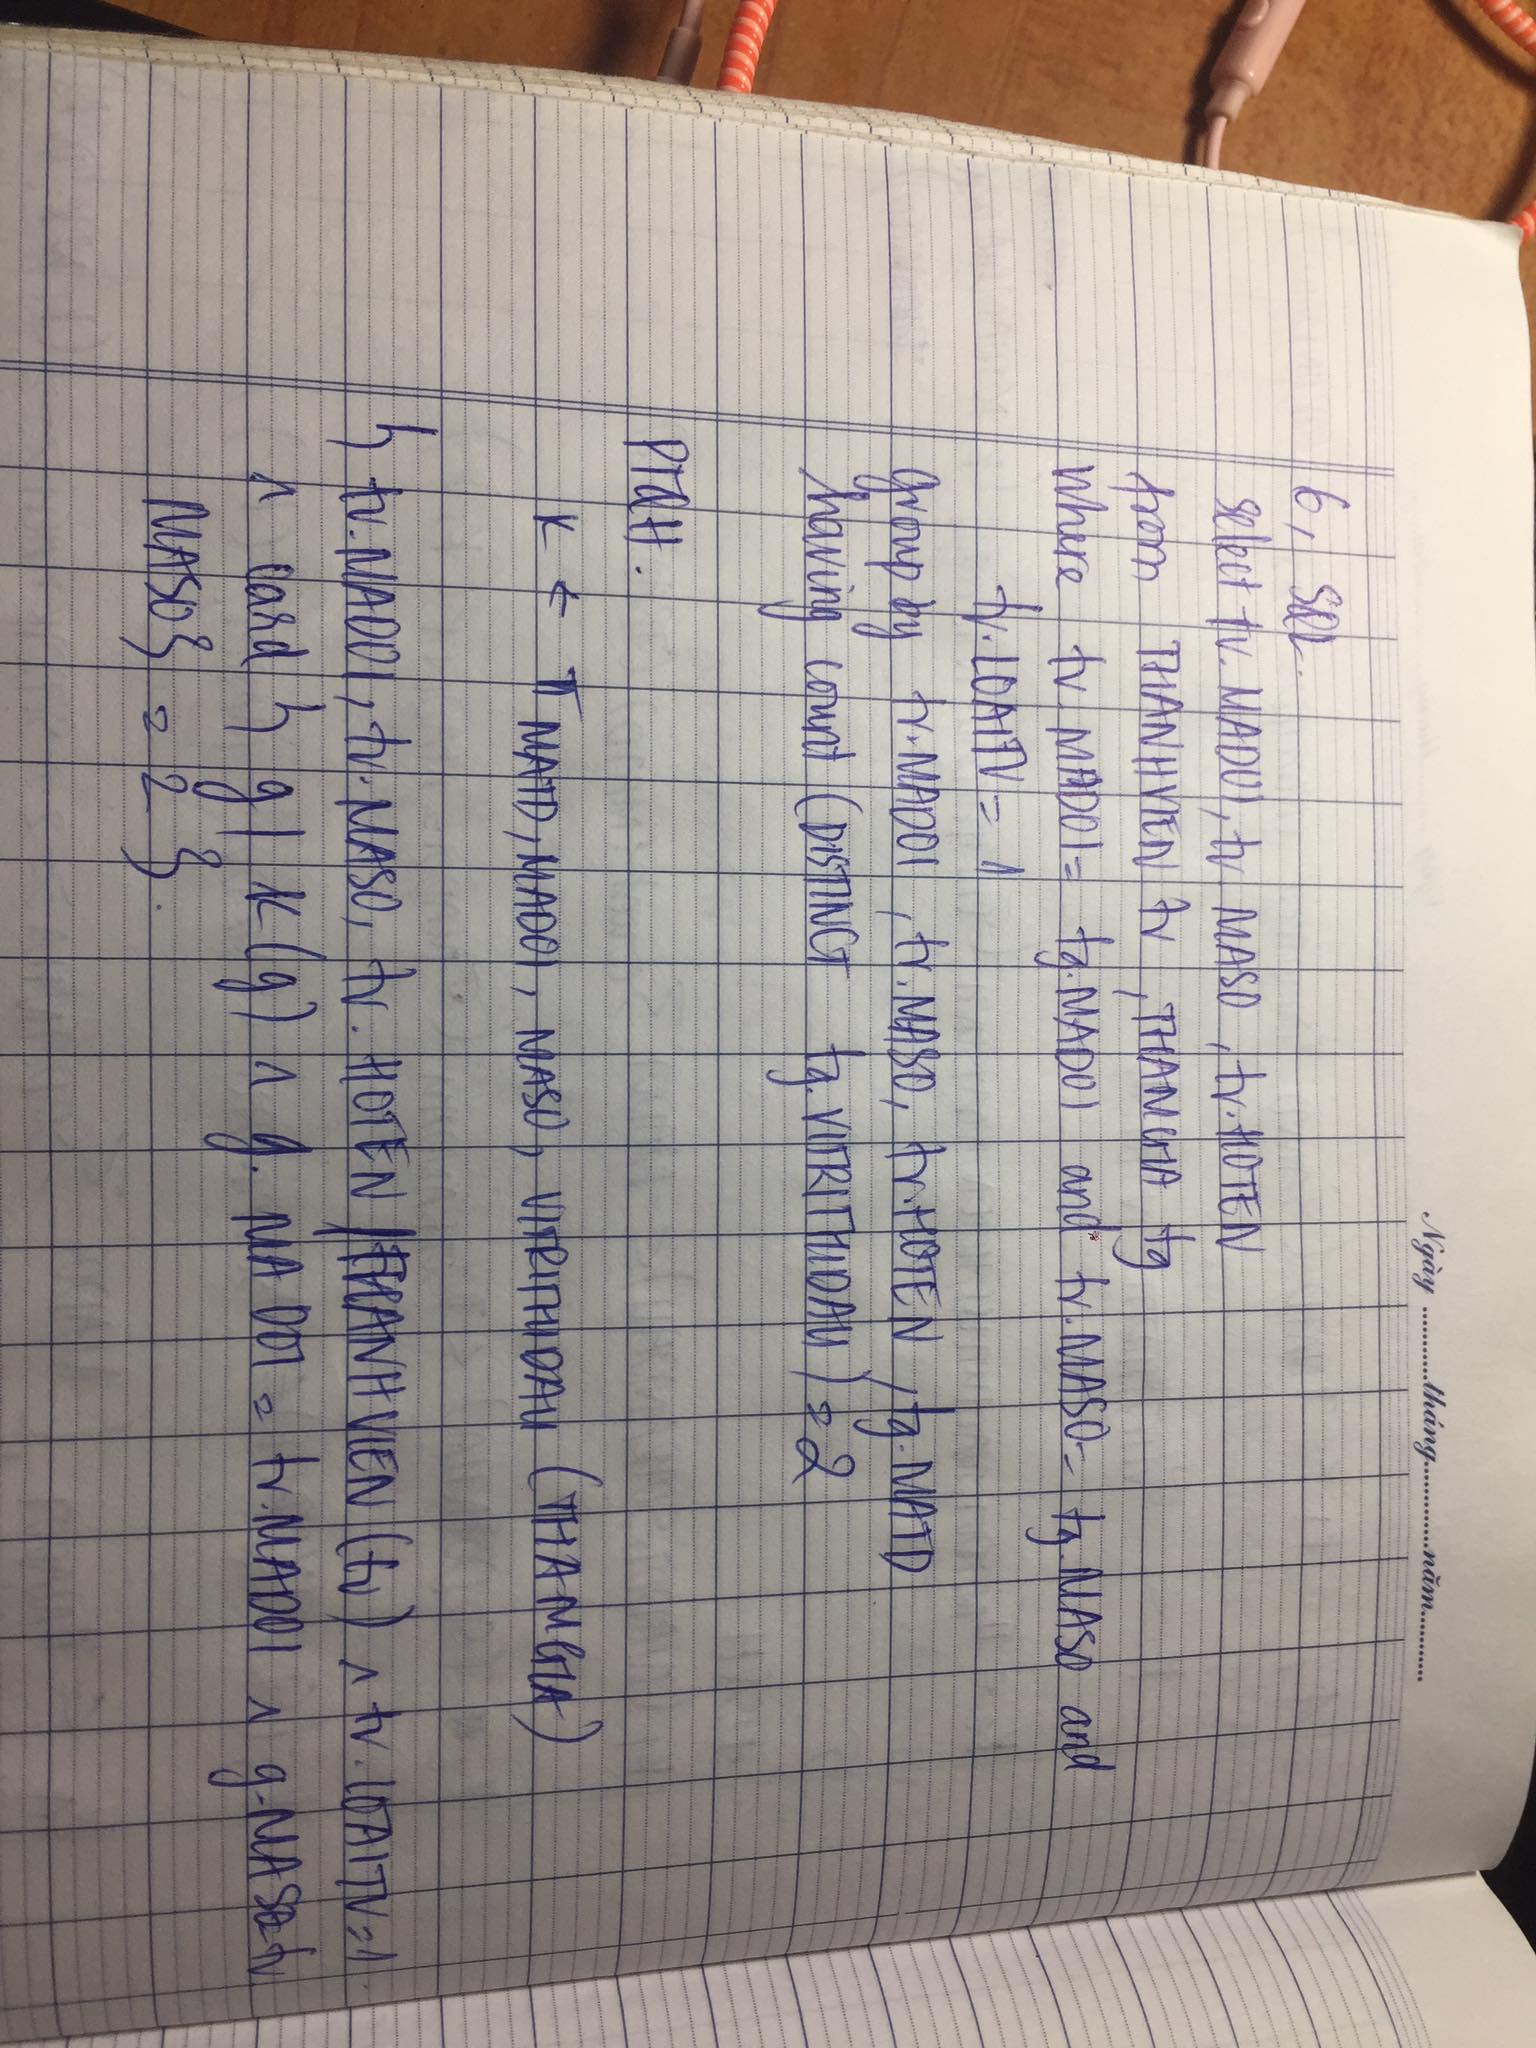 Ngày ............tháng............năm............
6, SQL.
select tv.MADOI, tv MASO, tv.HOTEN
from THANHVIEN tv, THAMGIA tg
Where tv.MADOI = tg.MADOI and tv.MASO = tg.MASO and
tv.LOAITV = 1
group by tv.MADOI, tv.MASO, tv.HOTEN, tg.MATD
having count (DISTINCT tg.VITRITHIDAU) = 2
PTQH.
K ← π MATD, MADOI, MASO, VITRITHIDAU (THAMGIA)
{ tv.MADOI, tv.MASO, tv.HOTEN / THANHVIEN (tv) ∧ tv.LOAITV = 1
∧ Card { g | K (g) ∧ g.MADOI = tv.MADOI ∧ g.MASO = tv
MASO } = 2 }.